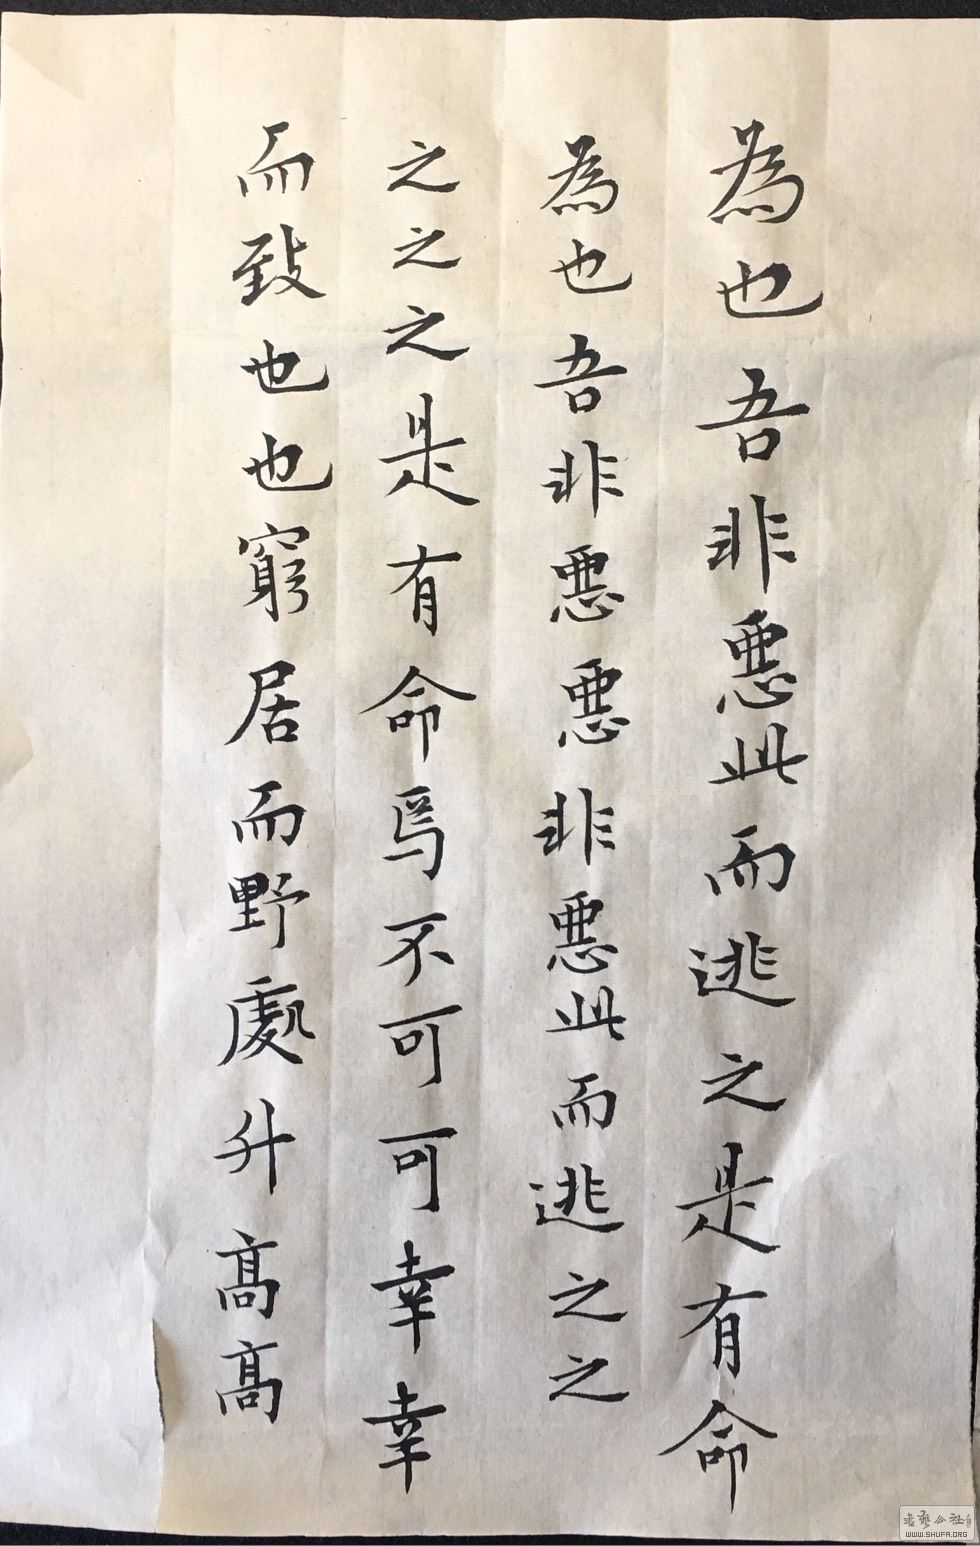 為也吾非惡此而逃之是有命
為也吾非惡惡非惡此而逃之之
之之之是有命焉不可可幸幸
而致也也窮居而野處升高高
WWW.SHUFA.ORG